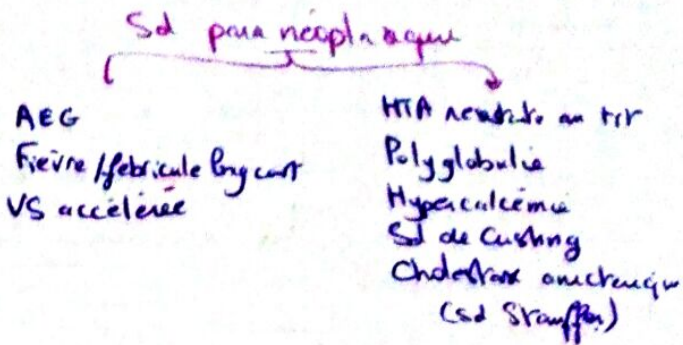 Sd para néoplasique
AEG
Fièvre / fébricule long court
VS accélérée
HTA résistante au trt
Polyglobulie
Hypercalcémie
Sd de Cushing
Cholestase anictérique
(Sd Stauffer)